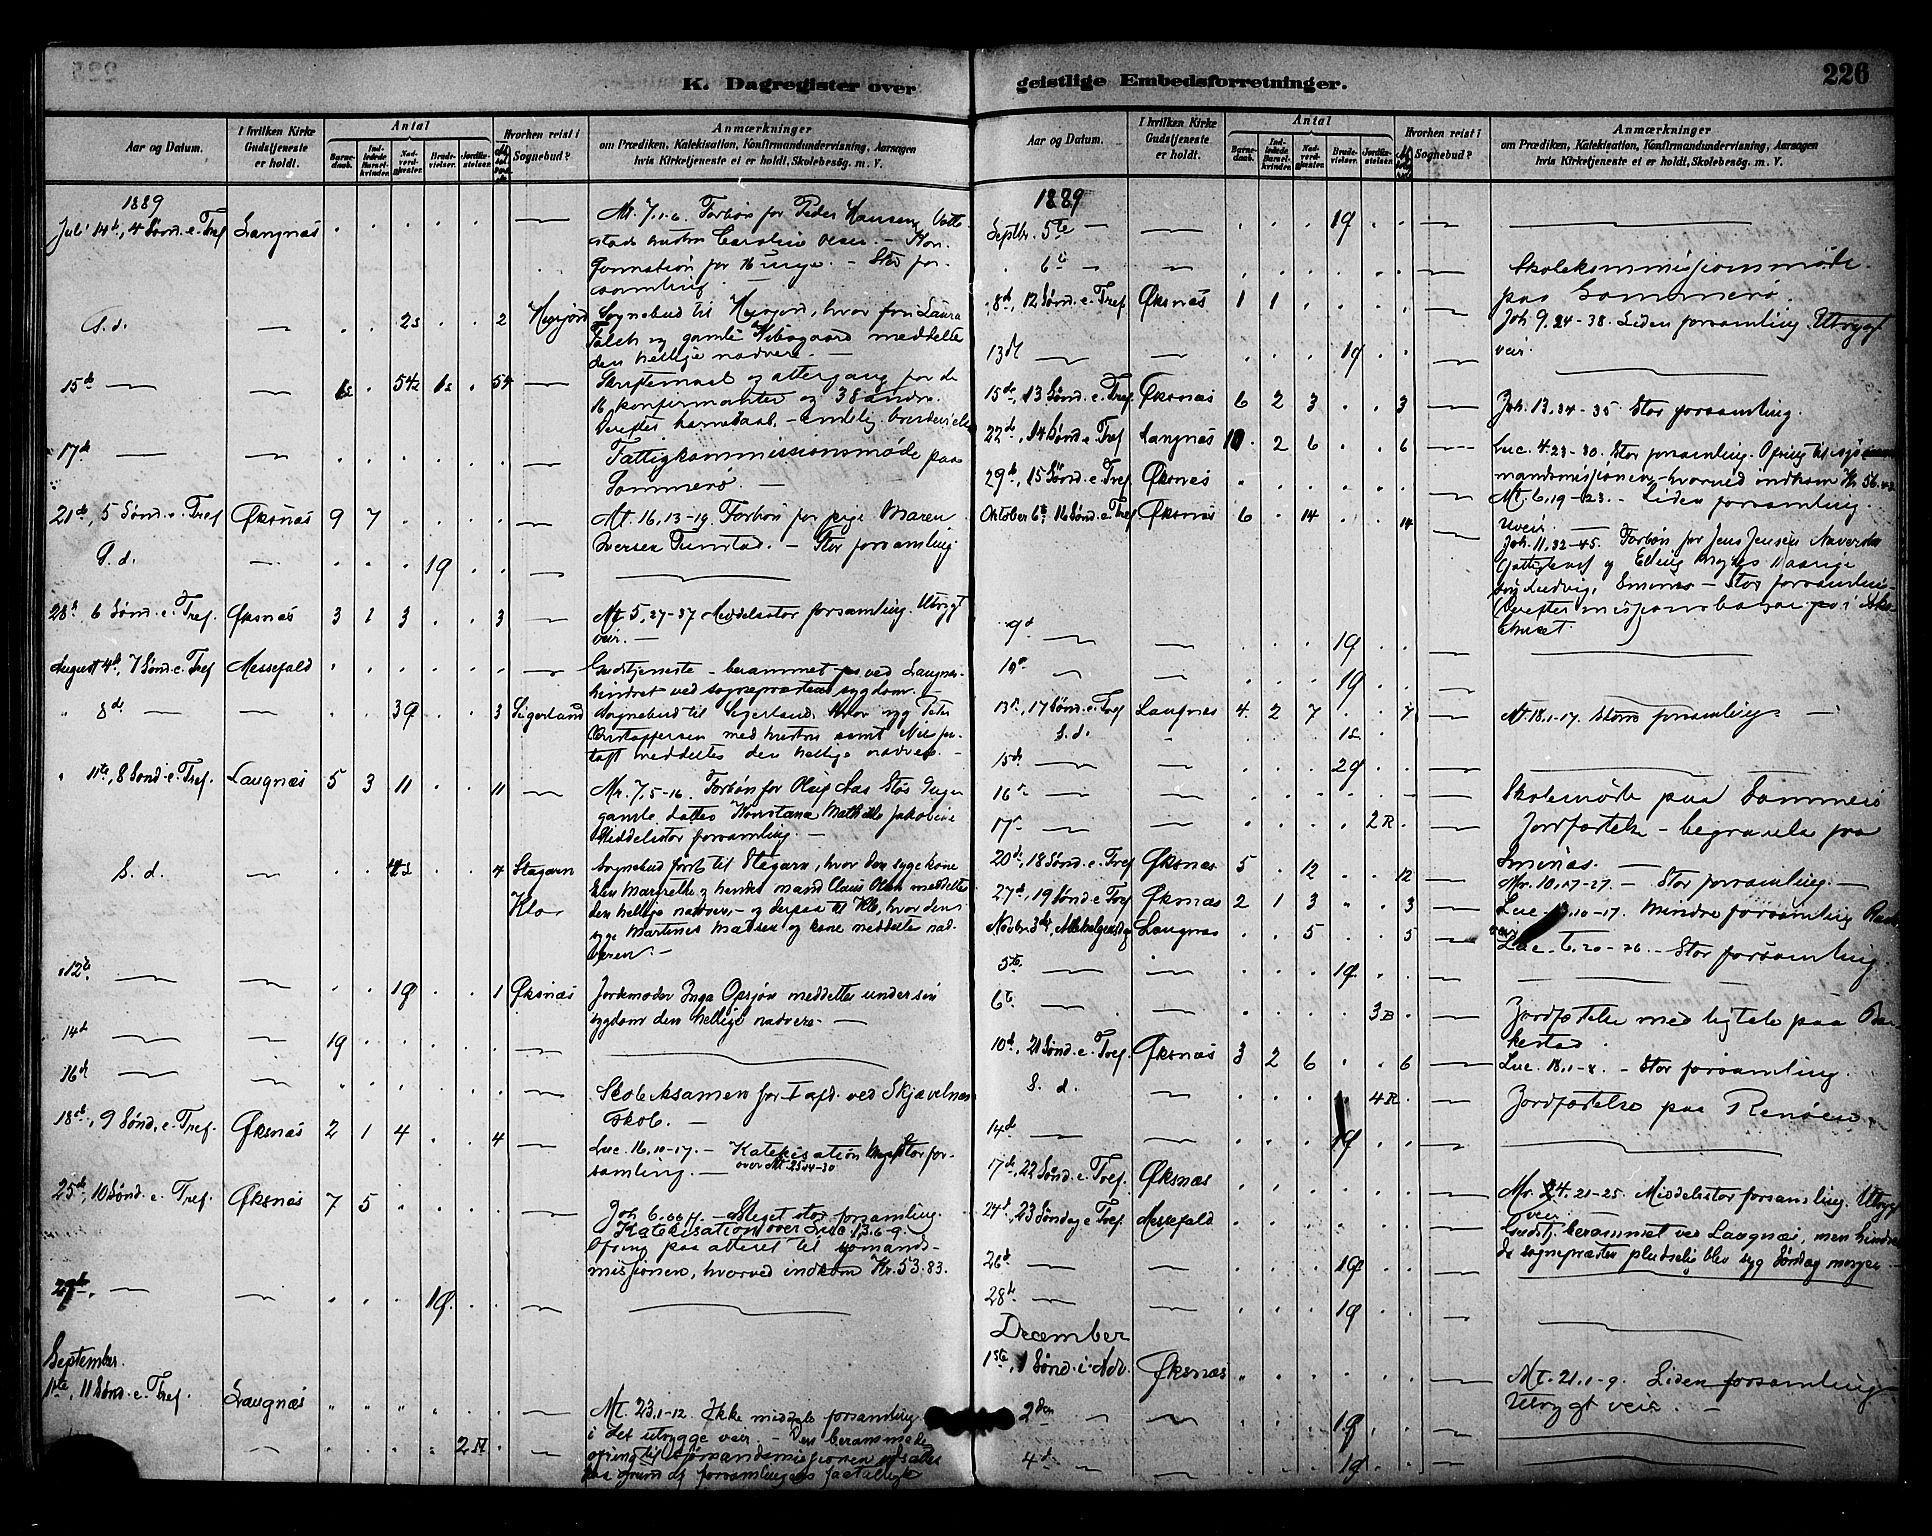 K. Dagregister over
Aar og Datum.
I hvilken Kirke Gudstjeneste er holdt.
Antal
Barnedaab.
Indledede Barselkvinder.
Nadverdgjæster.
Brudevielser.
Jordfæstelser.
Hvorhen reist i Sognebud?
Anmærkninger
om Prædiken, Katekisation, Konfirmandundervisning, Aarsagen
hvis Kirketjeneste ei er holdt, Skolebesøg. m. V.
1889
Juli 14de, 4 Sønd. e. Tref Langnæs . . . . . . Mr. 7.1-6. Forbøn for Peder Hansen
hustru Caroline Olsen. – Kon-
firmation for 16 unge. – Stor for-
samling.
S. d. . . 2s . . 2 Sognebud til, hvor fru Laura
Falch og gamle meddeltes
den hellige nadvere. –
15de . 54s . 54 Skriftemaal og altergang for de
16 konfirmanter og 38 andre.
Derefter barnedaab. – endelig brudevielse
17de . . . . . . Fattigkommissionsmøde paa
Sommerø. –
21de, 5 Sønd. e. Tref Øksnæs 9 7 . . . . Mt. 16,13-19. Forbøn for pige Maren
Iversen Tunstad. – Stor forsamling
S. d. . . . 1Ø . .
28de 6 Sønd. e. Tref. Øksnæs 3 1 3 . . 3 Mt 5,27-37 Middelstor forsamling. Utrygt
veir. –
August 4de, 7 Sønd. e. Tref Messefald . . . . . . Gudstjeneste – berammet ved Langnæs –
hindret ved sogneprestens sygdom. –
" 8de . . 3Ø . . 3 Sigerland Sognebud til Sigerland, hvor syg Peter
Christoffersen med hustru samt Nils
meddeltes den hellige nadvere. –
" 11te, 8 Sønd. e. Tref. Langnæs 5 3 11 . . 11 Mr. 7,5-16. Forbøn for Oluf Aas Stø
gamle datter Konstance Mathilde Jakobine
Middelstor forsamling. –
S. d. . . 4s . . 4 Stegarn Sognebud først til Stegarn, hvor den syge kone
Elen Margrethe og hendes mand Claus Olsen meddeltes
Klo den hellige nadvere, – og derpaa til Klo, hvor den
syge Martines Madsen og kone meddeltes nad-
veren. –
" 12te . . 1Ø . . 1 Øksnæs Jordemoder Inga Opsjøn meddeltes under sin
sygdom den hellige nadvere. –
14de 1Ø . . . . .
16de . . . . . . Skoleksamen for I afd. ved Skjævelnæs
skole. –
18de, 9 Sønd. e. Tref. Øksnæs 2 1 4 . . 4 Luc. 16,10-17. – Katekisation Stor for-
over Mt 25.14-30
samling. –
25de, 10 Sønd. e. Tref. Øksnæs 7 5 . . . . Joh 6. – Meget stor forsamling.
Katekisation over Luc. 13.6-9.
Ofring paa alteret til sømands-
misjonen, hvorved indkom Kr. 53.83.
29de. . . . 1Ø . .
September.
1ste, 11 Sønd. e. Tref. Langnæs " " " " . . Mt. 23.1-12. Ikke middels forsamling
i det utrygge veir. – Den berammede
ofring til sjømandsmissionen udsattes
paa grund af forsamlingens faatallighed
2
geistlige Embedsforretninger.
226
Aar og Datum.
I hvilken Kirke Gudstjeneste er holdt.
Antal
Barnedaab.
Indledede Barselkvinder.
Nadverdgjæster.
Brudevielser.
Jordfæstelser.
Hvorhen reist i Sognebud?
Anmærkninger
om Prædiken, Katekisation, Konfirmandundervisning, Aarsagen
hvis Kirketjeneste ei er holdt, Skolebesøg. m. V.
1889
Septbr. 5te . . . 1Ø . .
" 6te . . . . . . Skolekommissjonsmøde
paa Sommerø.
" 8de, 12 Sønd. e. Tref. Øksnæs 1 1 . . . . Joh 9.24-38. Liden forsamling. Utrygt
veir.
13de . . . 1Ø . .
15de, 13 Sønd. e. Tref. Øksnæs 6 2 3 . . 3 Joh. 13.34-35. Stor forsamling.
22de, 14 Sønd. e. Tref Langnæs 10 2 6 . . 6 Luc. 4.23-30. Stor forsamling. Ofring til sjø
mandsmissjonen, – hvorved indkom Kr 56.
29de, 15 Sønd. e. Tref Øksnæs . . . . . . Mt. 6,19-23. – Liden forsamling.
Uveir. –
Oktober 6te, 16 Sønd. e. Tref Øksnæs 6 . 14 . . 14 Joh. 11.32-45. Forbøn for Jens Jensen
søn Ludvig, – Stor forsamling –
(Derefter missjonsbasar i
huset.)
9de . . . 1Ø . .
10de . . . 1Ø . .
13de, 17 Sønd. e. Tref Langnæs 4 2 7 . . 7 Mt. 18.1-17. Større forsamling –
S. d. . . . 1s . .
15de . . . 2Ø . .
16de . . . . . . Skolemøde paa Sommerø
17de . . . . 2R . Jordfæstelse – begravelse paa
Smines. –
20de, 18 Sønd. e. Tref Øksnæs 5 . 12 . . 12 Mr. 10,17-27. – Stor forsamling. –
27de, 19 Sønd. e. Tref Øksnæs 2 1 3 " . 3 Luc. 13,10-17. Mindre forsamling.
veir
Novbr. 3die, Allehelgensdag Langnæs . . 5 . . 5 Luc. 6.20-26. – Stor forsamling.
5te . . . 1Ø . .
6te . . . . 3B . Jordfæstelse med ligtale paa Bar-
kestad.
10de, 21 Sønd. e. Tref. Øksnæs 3 2 6 . . 6 Luc. 18.1-8. – Stor forsamling.
S. d. . . . . 4R . Jordfæstelse paa Renøen.
14de . . . 1Ø . .
17de, 22 Sønd. e. Tref. Øksnæs . . . . . . Mr. 4.21-25. Middelstor forsamling. Utrygt
veir
24de, 23 Søndag e. Tref. Messefald . . . . . . Gudstj. berammet ved Langnæs, men hindret
da sognepræsten pludselig blev syg Søndag morgen –
26de . . . 1Ø . .
28de . . . 1Ø . .
December
1ste, 1 Sønd. i Adv. Øksnæs " . . . . . Mt. 21.1-9. Liden forsamling
Utrygt veir. –
2den . . . 1Ø . .
4de . . . 1Ø . .